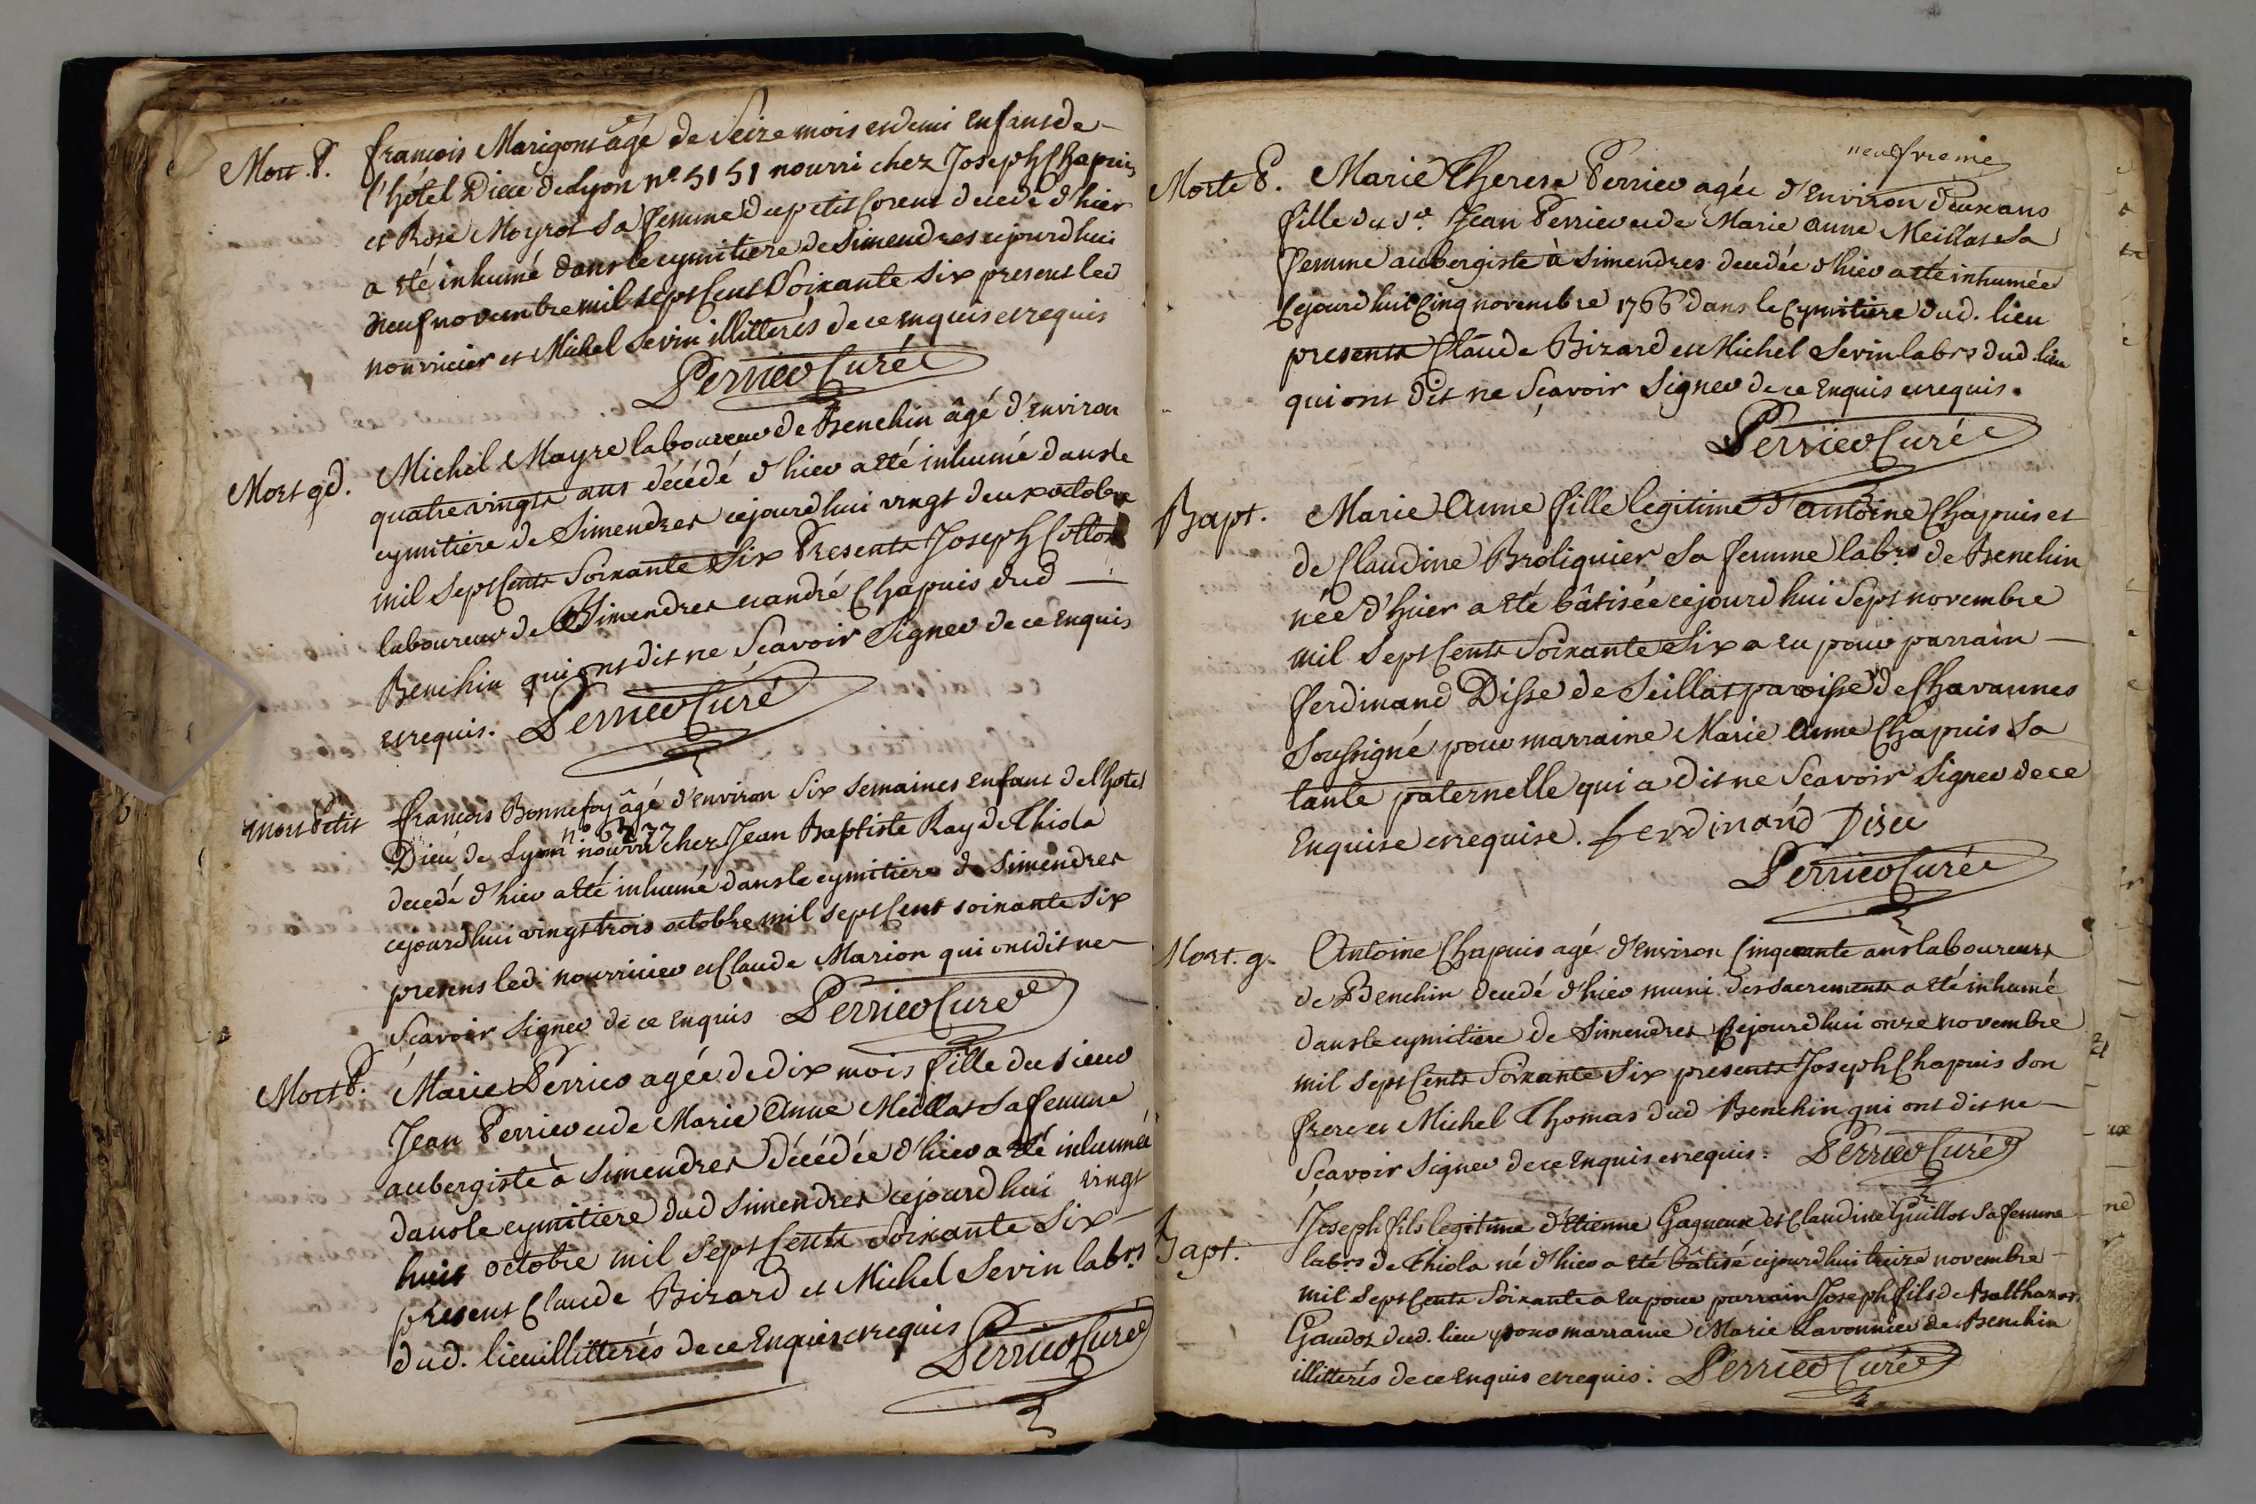 Mort. P.
françois Marigont âgé de Seize mois et demi Enfant de
l'hôtel Dieu de Lyon n° 5151 nourri chez Joseph Chapuis
et Rose Moyrot Sa femme du petit Corent decedé d'hier
a été inhumé dans le cymitiere de Simendres cejourdhui
neuf novembre mil sept Cent Soixante Six present led
nourricier et Michel Sevin illitterés de ce enquis et requis
Perrier Curé
Mort gd.
Michel Mayre laboureur de Benchin âgé d'environ
quatre vingts ans décédé d'hier a été inhumé dans le
cymitiere de Simendres cejourdhui vingt deux octobre
mil Sept Cents Soixante Six Presents Joseph
laboureur de Simendres et andré Chapuis dud
Benchin qui ont dit ne Scavoir Signer de ce Enquis
et requis. Perrier Curé
mort Petit
françois Bonnefoy âgé d'environ Six Semaines Enfant de l'hotel
Dieu de Lyon n° nourri chez Jean Baptiste Ray de Thiola
decedé d'hier a été inhumé dans le cymitiere de Simendres
cejourdhui vingt trois octobre mil sept Cent soixante Six
presens led. nourricier et Claude Marion qui ont dit ne
Scavoir Signer de ce Enquis Perrier Curé
Mort P.
Marie Perrier agée de dix mois fille du Sieur
Jean Perrier et de Marie Anne Meillat Sa femme
aubergiste à Simendres décédée d'hier a été inhumée
dans le cymitiere dud Simendres cejourdhui vingt
huit octobre mil Sept Cents Soixante Six
present Claude Bizard et Michel Sevin labrs
dud. lieu illitterés de ce Enquis et requis
Perrier Curé
neuf
Morte P.
Marie Therese Perrier agée d'Environ deux ans
fille du Sr. Jean Perrier et de Marie anne Meillat Sa
femme aubergiste à Simendres decedée d'hier a été inhumée
Cejourdhui Cinq novembre 1766 dans le Cymitiere dud. lieu
presents Claude Bizard et Michel Sevin labrs dud. lieu
qui ont dit ne Sçavoir Signer de ce Enquis et requis.
Perrier Curé
Bapt.
Marie Anne fille legitime d'antoine Chapuis et
de Claudine Broliquier Sa femme labrs de Benchin
née d'hier a été bâtisée cejourdhui Sept novembre
mil Sept Cents Soixante Six a eu pour parrain
ferdinand Disse de Seillat paroisse de Chavannes
Soussigné pour marraine Marie Anne Chapuis Sa
tante paternelle qui a dit ne Scavoir Signer de ce
Enquise et requise. ferdinand Dise
Perrier Curé
Mort. g.
Antoine Chapuis agé d'environ Cinquante ans laboureur
de Benchin decedé d'hier muni des Sacrements a été inhumé
dans le cymitiere de Simendres Cejourdhui onze novembre
mil Sept Cents Soixante Six presents Joseph Chapuis Son
frere et Michel Thomas dud Benchin qui ont dit ne
Scavoir Signer de ce Enquis et requis. Perrier Curé
Bapt.
Joseph fils legitime d'Etienne Gagneux et Claudine Guillot Sa femme
labrs de Thiola né d'hier a été bâtisé cejourdhui treize novembre
mil Sept Cents Soixante a eu pour parrain Joseph fils de Balthazar
Gaudoz dud. lieu pour marraine Marie Lavonnier de Benchin
illitterés de ce Enquis et requis. Perrier Curé